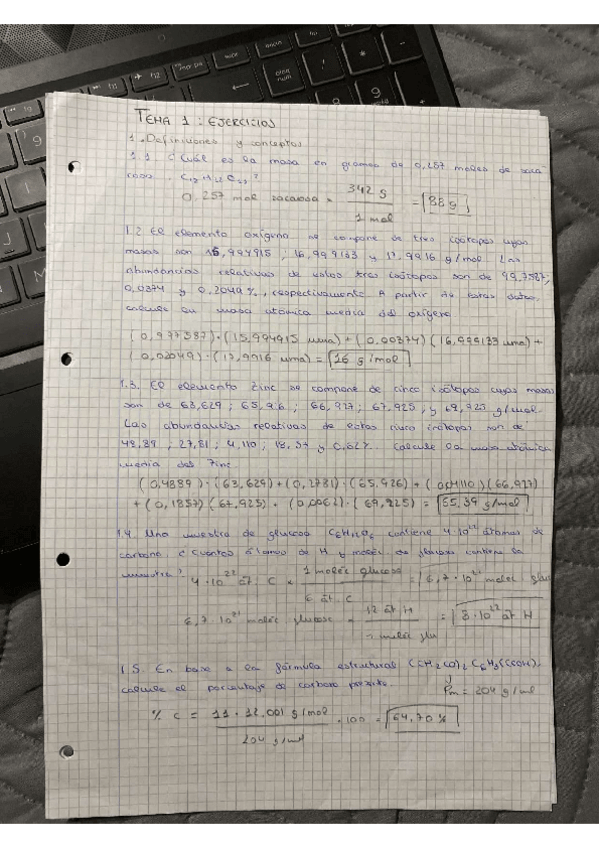 TEMA 1: EJERCICIOS
1. Definiciones y conceptos
1.1. ¿Cuál es la masa en gramos de 0,257 moles de saca
rosa, C12H22O11?
0,257 mol sacarosa · 342 g / 1 mol = 88 g
1.2 El elemento oxígeno se compone de tres isótopos cuyas
masas son 15,994915, 16,999133 y 17,9916 g/mol. Las
abundancias relativas de estos tres isótopos son de 99,7587,
0,0374 y 0,2049 %, respectivamente. A partir de estos datos,
calcule la masa atómica media del oxígeno.
(0,997587)·(15,994915 uma) + (0,00374)(16,999133 uma) +
(0,02049)·(17,9916 uma) = 16 g/mol
1.3. El elemento Zinc se compone de cinco isótopos cuyas masas
son de 63,929; 65,926; 66,927; 67,925; y 69,925 g/mol.
Las abundancias relativas de estos cinco isótopos son de
48,89; 27,81; 4,110; 18,57 y 0,62%. Calcule la masa atómica
media del Zinc.
(0,4889)·(63,629) + (0,2781)·(65,926) + (0,04110)(66,927)
+ (0,1857)(67,925) + (0,0062)·(69,925) = 65,39 g/mol
1.4. Una muestra de glucosa C6H12O6 contiene 4·10²² átomos de
carbono. ¿Cuántos átomos de H y moléc. de glucosa contiene la
muestra?
4·10²² át. C · 1 moléc glucosa / 6 át. C = 6,7·10²¹ moléc gluc
6,7·10²¹ moléc glucosa · 12 át H / 1 moléc glu = 8·10²² át H
1.5. En base a la fórmula estructural (CH3CO)2C6H3(COOH),
calcule el porcentaje de carbono presente.
Pm = 204 g/mol
% C = 11 · 12,001 g/mol / 204 g/mol · 100 = 64,70 %